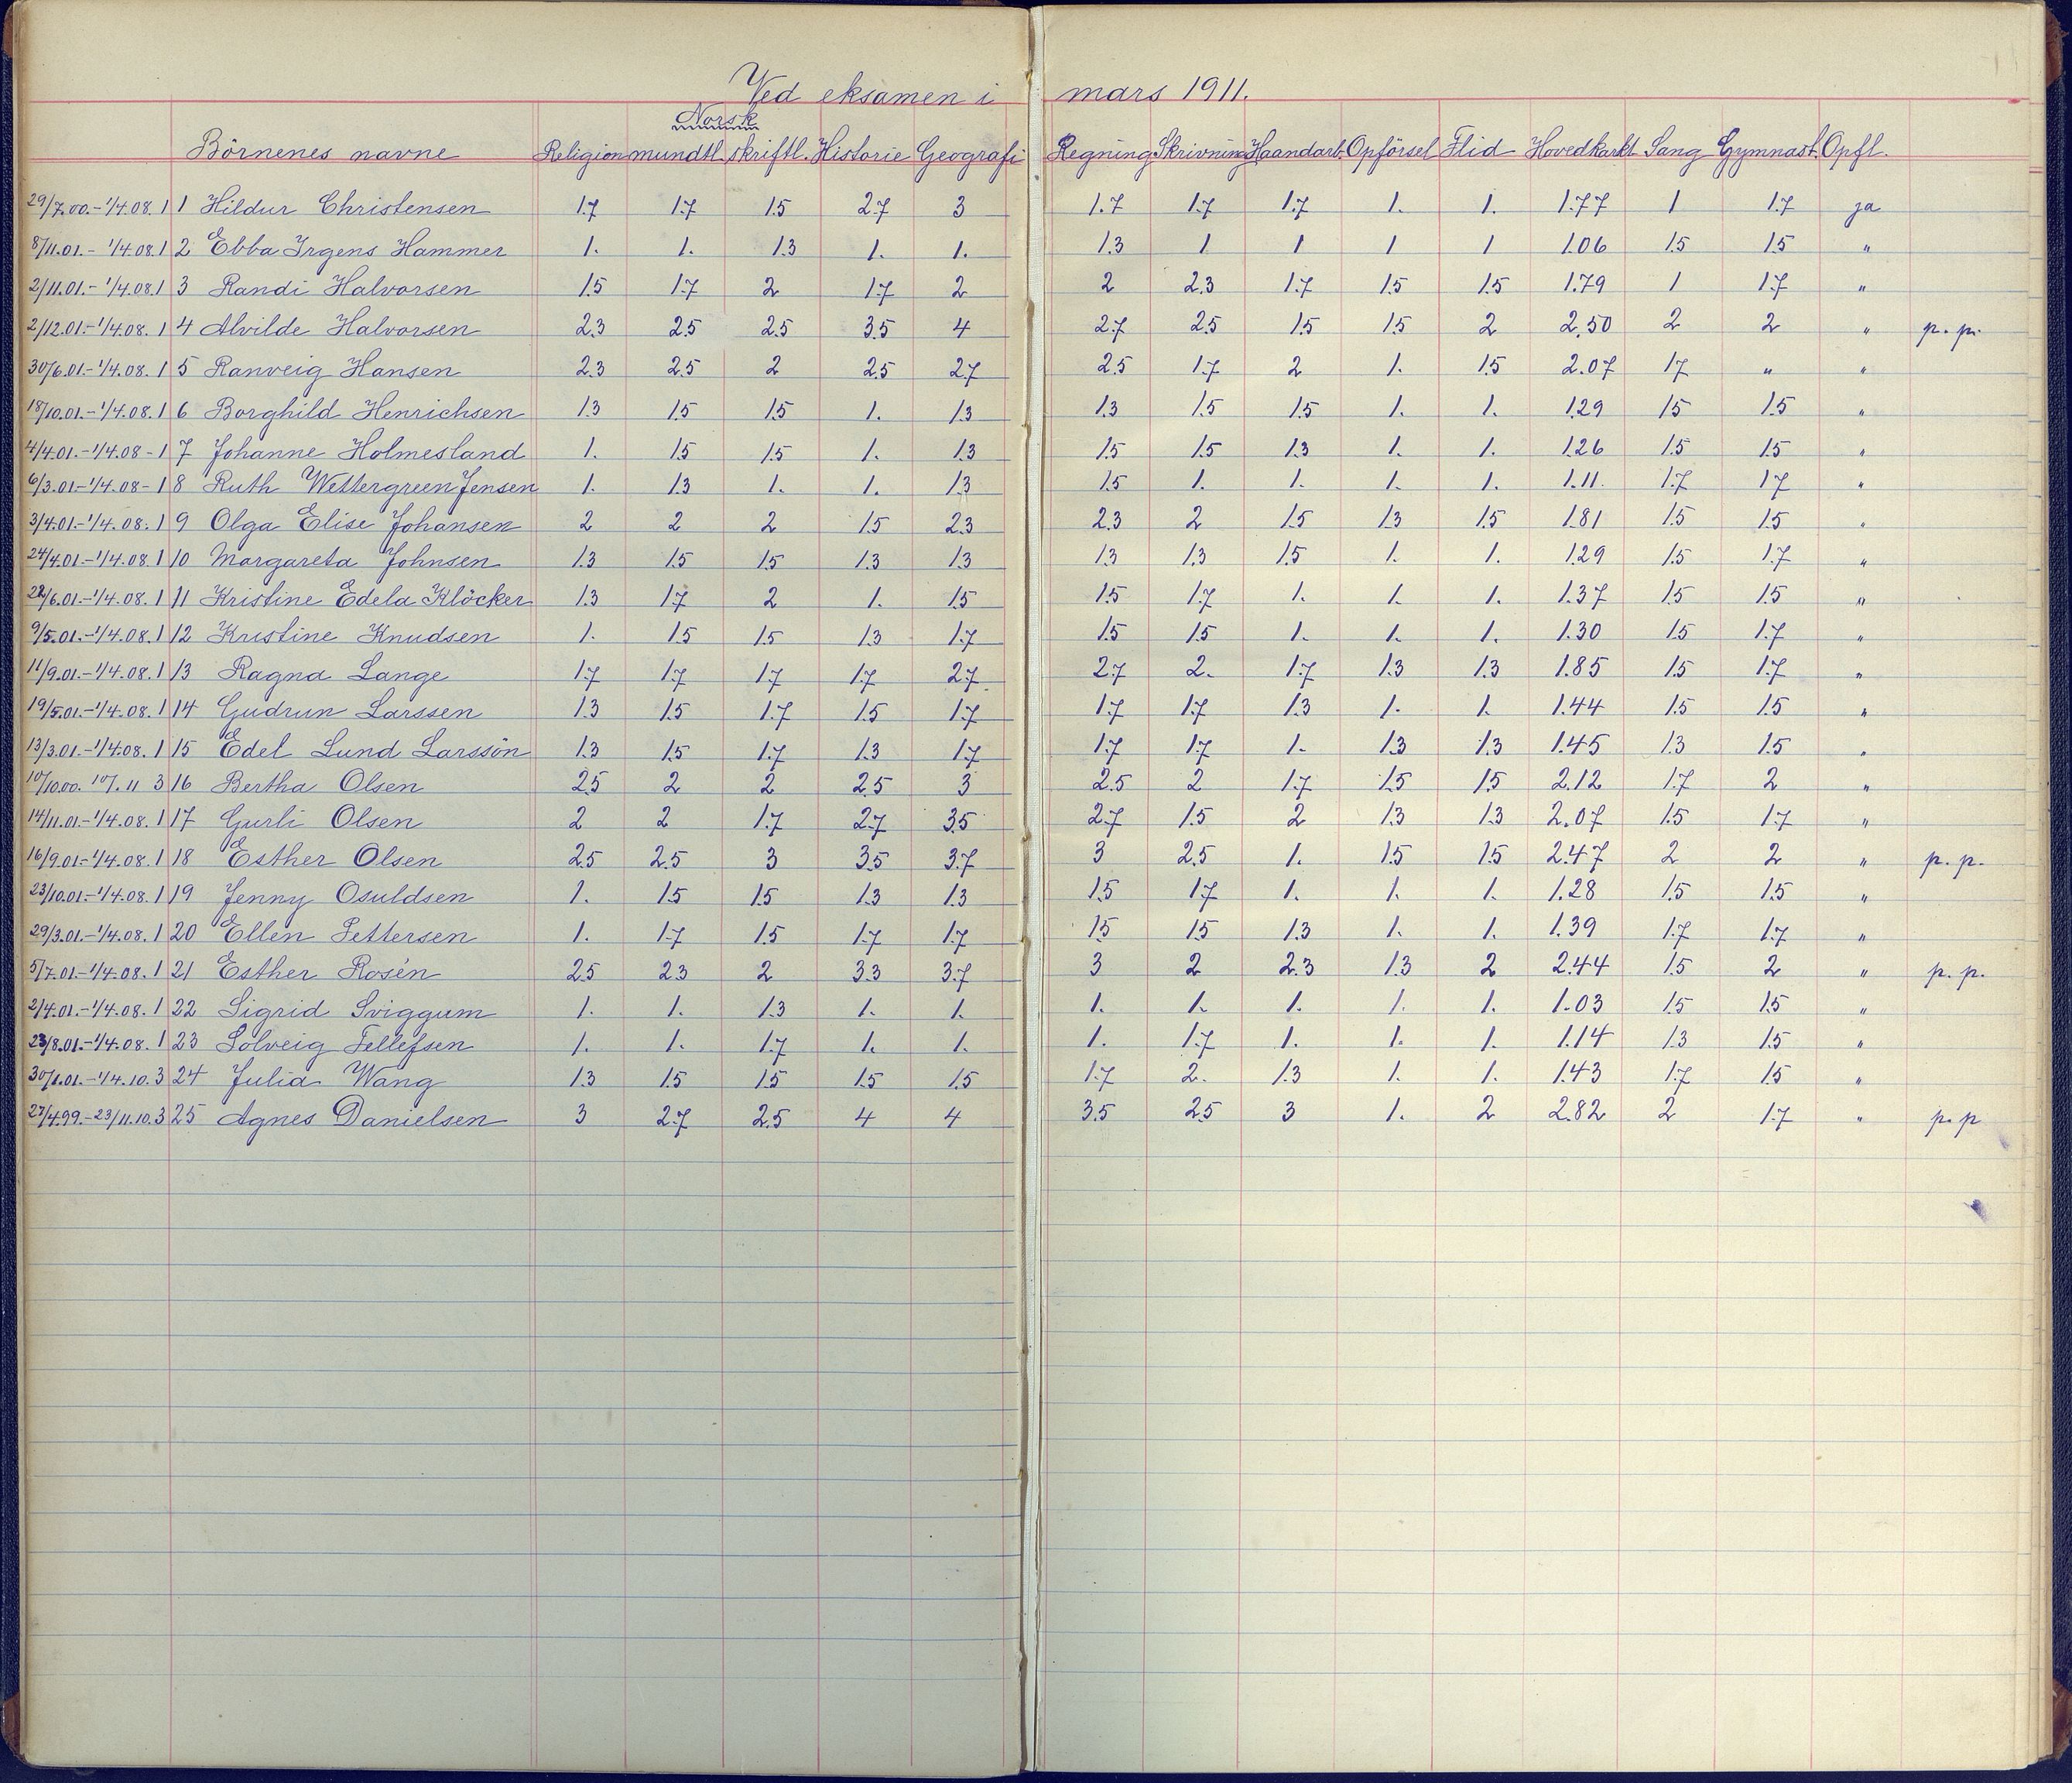 Ved eksamen i mars 1911.
Norsk
Börnenes navne Religion mundtl. skriftl. Historie Geografi Regning Skrivning Haandarb. Opförsel Flid Hovedkarkt Sang Gymnast. Opfl.
29/7.00.-1/4.08. 1 1 Hildur Christensen 1.7 1.7 1.5 2.7 3 1.7 1.7 1.7 1. 1. 1.77 1 1.7 ja
8/11.01.-1/4.08. 1 2 Ebba Irgens Hammer 1. 1. 1.3 1. 1. 1.3 1 1 1 1 1.06 1.5 1.5 "
2/11.01.-1/4.08. 1 3 Randi Halvorsen 1.5 1.7 2 1.7 2 2 2.3 1.7 1.5 1.5 1.79 1 1.7 "
2/12.01.-1/4.08. 1 4 Alvilde Halvorsen 2.3 2.5 2.5 3.5 4 2.7 2.5 1.5 1.5 2 2.50 2 2 " p. p.
30/6.01.-1/4.08. 1 5 Ranveig Hansen 2.3 2.5 2 2.5 2.7 2.5 1.7 2 1. 1.5 2.07 1.7 " "
18/10.01.-1/4.08. 1 6 Borghild Henrichsen 1.3 1.5 1.5 1. 1.3 1.3 1.5 1.5 1. 1. 1.29 1.5 1.5 "
4/4.01.-1/4.08-1 7 Johanne Holmesland 1. 1.5 1.5 1. 1.3 1.5 1.5 1.3 1. 1. 1.26 1.5 1.5 "
6/3.01.-1/4.08-1 8 Ruth Wettergreen Jensen 1. 1.3 1. 1. 1.3 1.5 1. 1. 1. 1. 1.11. 1.7 1.7 "
3/4.01.-1/4.08. 1 9 Olga Elise Johansen 2 2 2 1.5 2.3 2.3 2 1.5 1.3 1.5 1.81 1.5 1.5 "
24/4.01.-1/4.08. 1 10 Margareta Johnsen 1.3 1.5 1.5 1.3 1.3 1.3 1.3 1.5 1. 1. 1.29 1.5 1.7 "
22/6.01.-1/4.08. 1 11 Kristine Edela Klöcker 1.3 1.7 2 1. 1.5 1.5 1.7 1. 1. 1. 1.37 1.5 1.5 "
9/5.01.-1/4.08. 1 12 Kristine Knudsen 1. 1.5 1.5 1.3 1.7 1.5 1.5 1. 1. 1. 1.30 1.5 1.7 "
11/9.01.-1/4.08. 1 13 Ragna Lange 1.7 1.7 1.7 1.7 2.7 2.7 2. 1.7 1.3 1.3 1.85 1.5 1.7 "
19/5.01.-1/4.08. 1 14 Gudrun Larssen 1.3 1.5 1.7 1.5 1.7 1.7 1.7 1.3 1. 1. 1.44 1.5 1.5 "
13/3.01.-1/4.08. 1 15 Edel Lund Larssön 1.3 1.5 1.7 1.3 1.7 1.7 1.7 1. 1.3 1.3 1.45 1.3 1.5 "
10/10.00. 10/1.11 3 16 Bertha Olsen 2.5 2 2 2.5 3 2.5 2 1.7 1.5 1.5 2.12 1.7 2 "
14/11.01.-1/4.08. 1 17 Gurli Olsen 2 2 1.7 2.7 3.5 2.7 1.5 2 1.3 1.3 2.07 1.5 1.7 "
16/9.01.-1/4.08. 1 18 Esther Olsen 2.5 2.5 3 3.5 3.7 3 2.5 1. 1.5 1.5 2.47 2 2 " p. p.
23/10.01.-1/4.08. 1 19 Jenny Osuldsen 1. 1.5 1.5 1.3 1.3 1.5 1.7 1. 1. 1. 1.28 1.5 1.5 "
29/3.01.-1/4.08. 1 20 Ellen Pettersen 1. 1.7 1.5 1.7 1.7 1.5 1.5 1.3 1. 1. 1.39 1.7 1.7 "
5/7.01.-1/4.08. 1 21 Esther Rosén 2.5 2.3 2 3.3 3.7 3 2 2.3 1.3 2 2.44 1.5 2 " p. p.
2/4.01.-1/4.08. 1 22 Sigrid Sviggum 1. 1. 1.3 1. 1. 1. 1. 1. 1. 1. 1.03 1.5 1.5 "
23/8.01.-1/4.08. 1 23 Solveig Tellefsen 1. 1. 1.7 1. 1. 1. 1.7 1. 1. 1. 1.14 1.3 1.5 "
1/4.10. 3 24 Julia Wang 1.3 1.5 1.5 1.5 1.5 1.7 2. 1.3 1. 1. 1.43 1.7 1.5 "
27/4.99.-23/11.10. 3 25 Agnes Danielsen 3 2.7 2.5 4 4 3.5 2.5 3 1. 2 2.82 2 1.7 " p. p